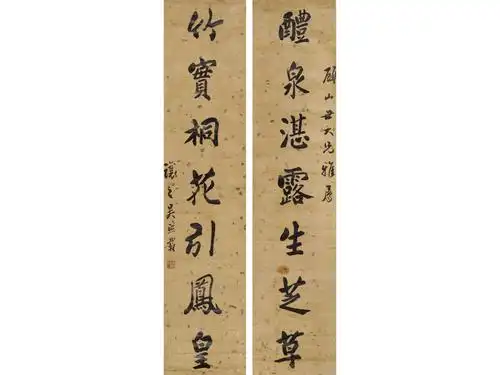 醴泉湛露生芝草
山五大先雅屬
竹實桐花引鳳皇
讓之吳熙載